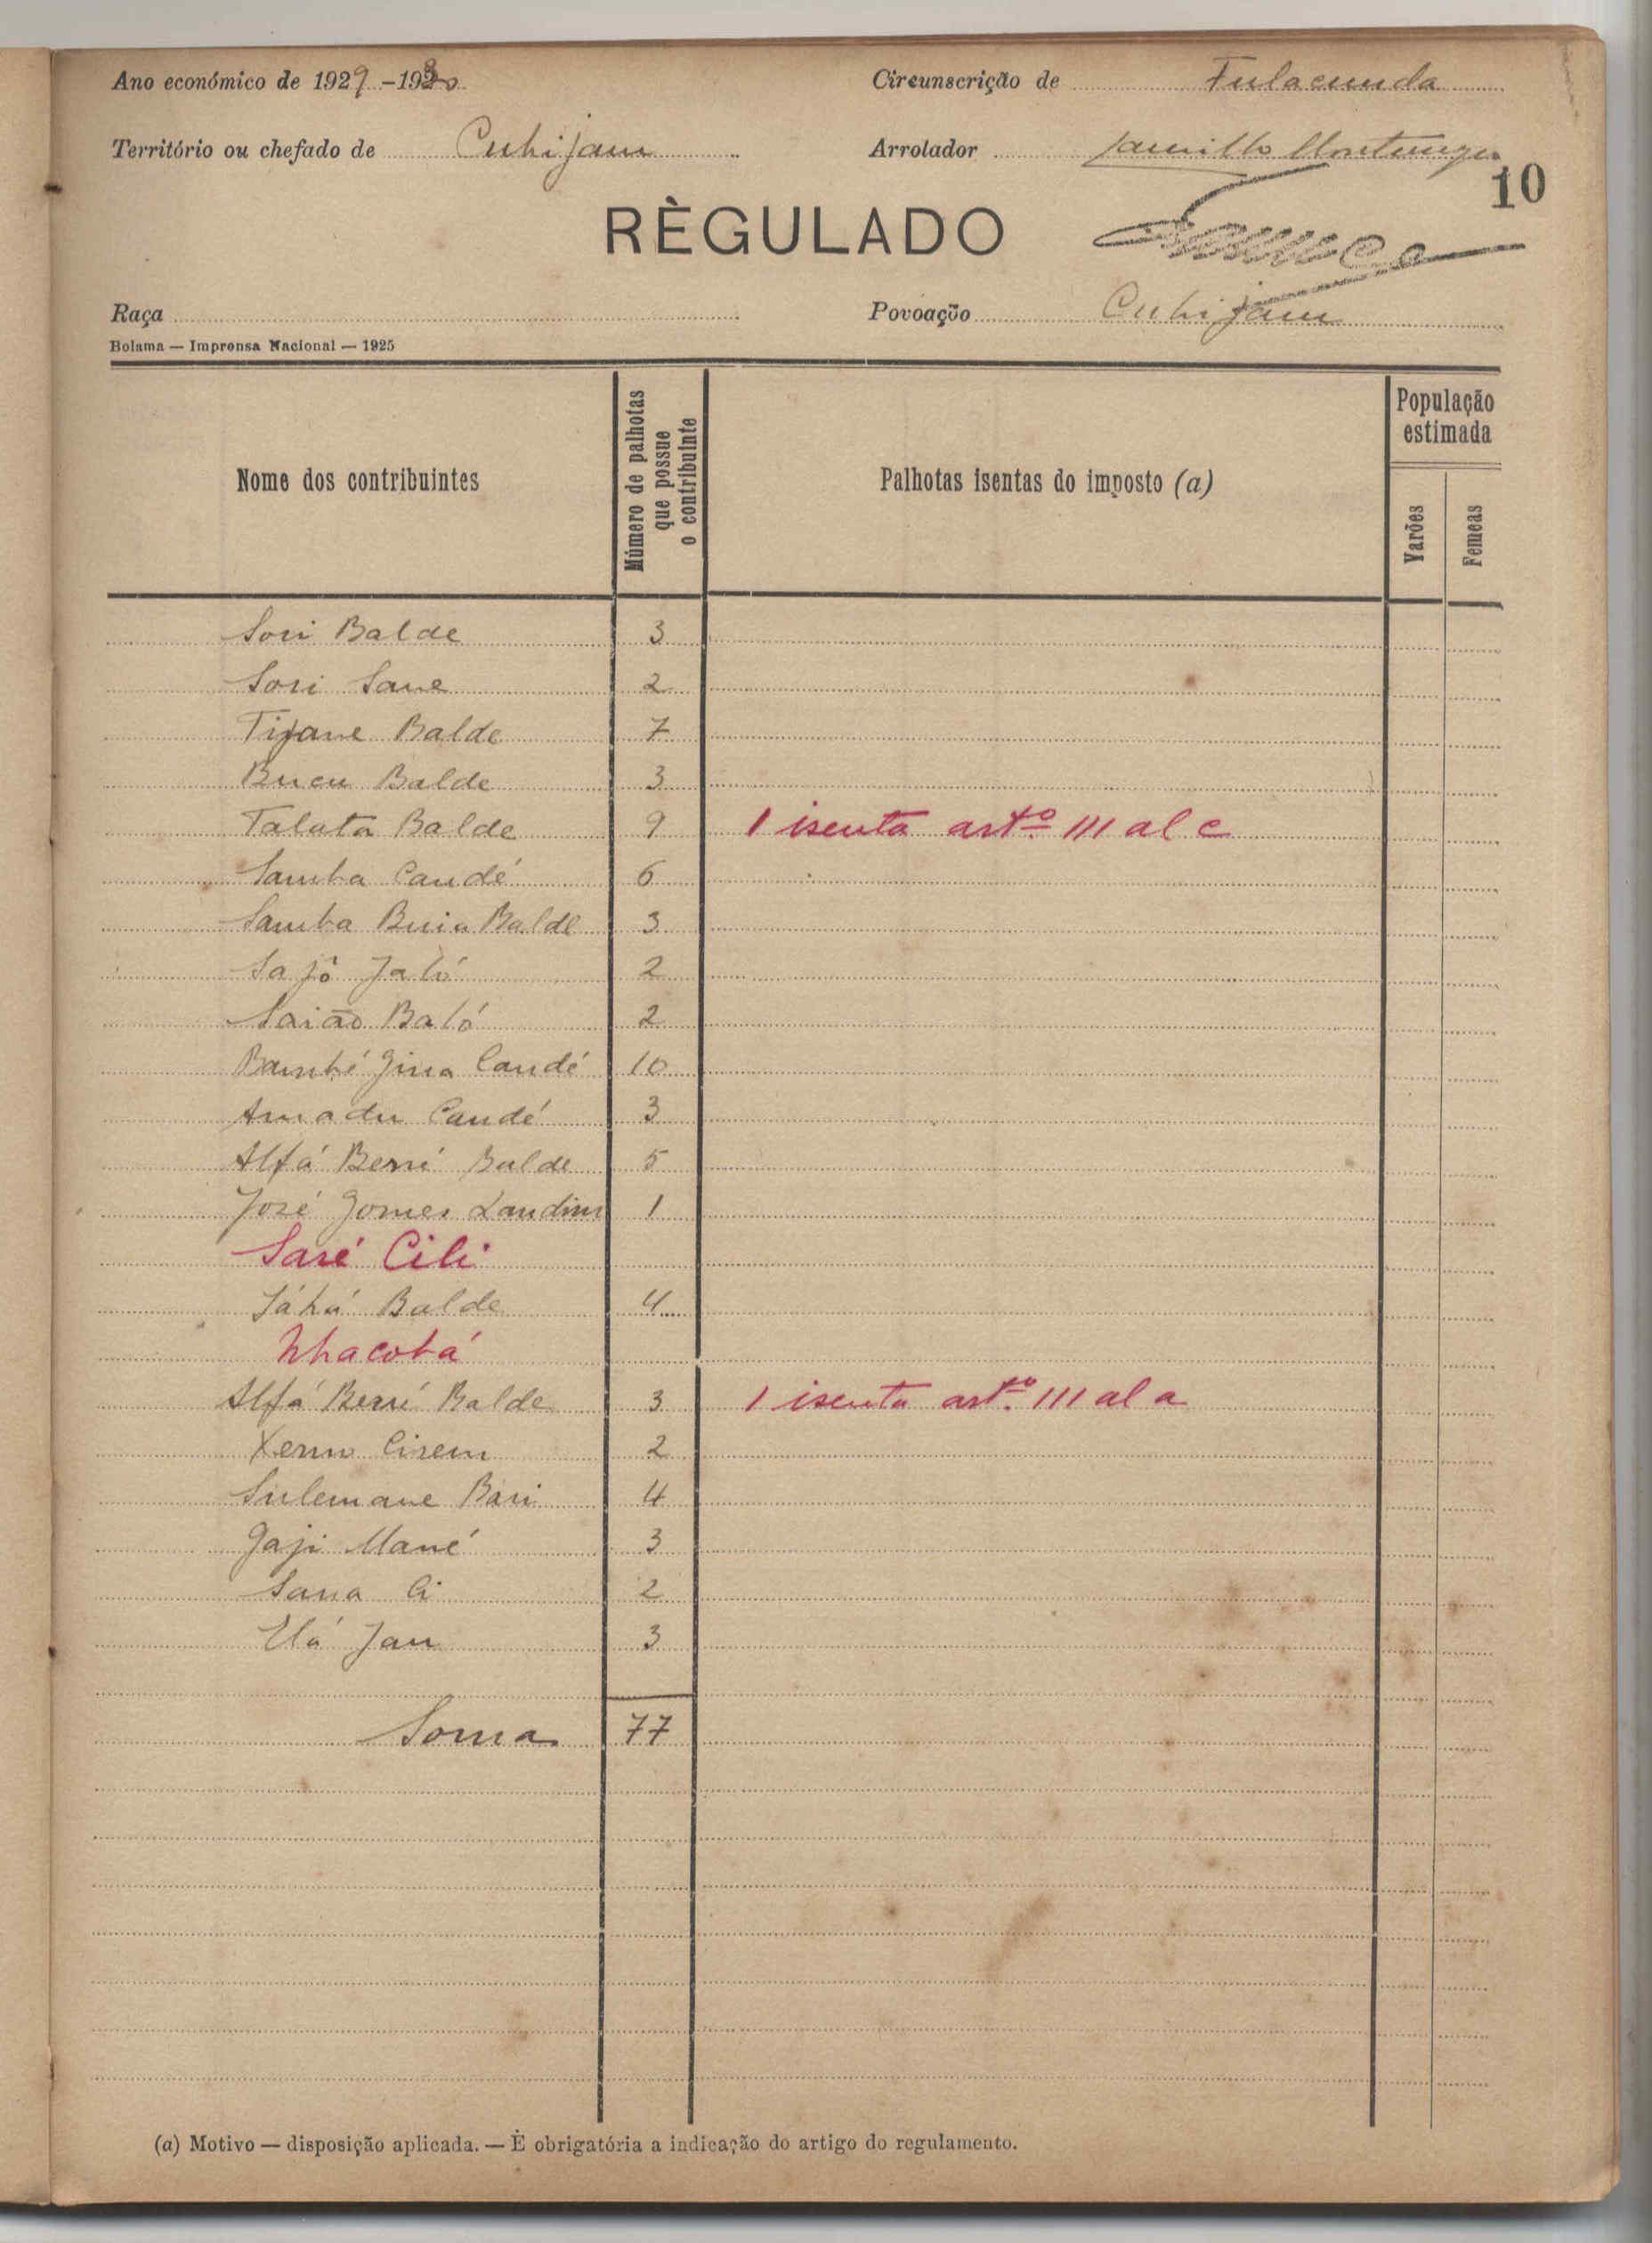 Ano económico de 1929-1930 Circunscrição de Fulacunda
Território ou chefado de Cuhijam Arrolador Camillo Montenegro
10
RÈGULADO
Raça Povoação Cuhijam
Bolama — Imprensa Nacional — 1925
Nome dos contribuintes
Número de palhotas que possue o contribuinte
Palhotas isentas do imposto (a)
População estimada
Varões
Femeas
Sori Balde 3
Sori Sane 2
Tijane Balde 7
Bucu Balde 3
Talata Balde 9 1 isenta artº 111 al c
Samba Candé 6
Samba Buia Balde 3
Sajô Jaló 2
Saião Baló 2
Bambé Gina Candé 10
Amadu Candé 3
Alfá Berri Balde 5
José Gomes Landim 1
Saré Cili
Jáhá Balde 4
Nhacobá
Alfá Berré Balde 3 1 isenta artº 111 al a
Xerno Cirem 2
Sulemane Bari 4
Gaji Mané 3
Sana Ci 2
Elá Jau 3
Soma 77
(a) Motivo — disposição aplicada. — È obrigatória a indicação do artigo do regulamento.